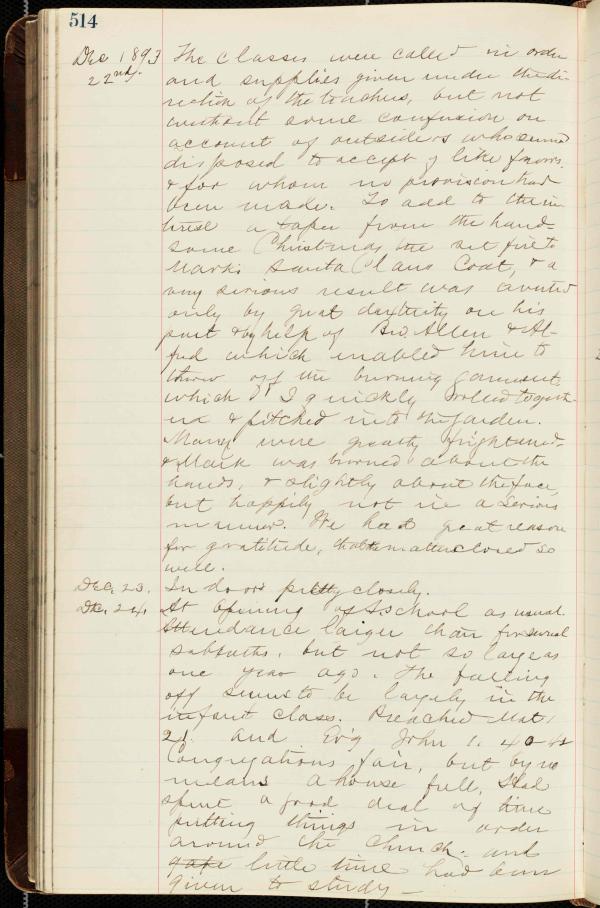 514
Dec 1893
22nd.
The classes were called in order
and supplies given under the di
rection of the teachers, but not
without some confusion on
account of outsiders who seemed
disposed to accept of like favors.
& for whom no provision had
been made. To add to the in
terest a taper from the hand
some Christmas tree set fire to
Mark's Santa Claus Coat, & a
very serious result was averted
only by great dexterity on his
part & by help of Bro. Allen & Al-
fred which enabled him to
throw off the burning garment
which I quickly rolled togeth-
er & pitched into the garden.
Many were greatly frightened
& Mark was burned about the
hands, & slightly about the face,
but happily not in a serious
manner. We had great reason
for gratitude, that the matter closed so
well.
Dec. 23. In doors pretty closely.
Dec. 24. At opening of S. school as usual.
Attendance larger than for several
sabbaths, but not so large as
one year ago. The falling
off seems to be largely in the
infant class. Preached Mat.
2.1. and Ev'g John 1. 40-42
Congregations fair, but by no
means a house full, Had
spent a good deal of time
putting things in order
around the church, and
little time had been
given to study —